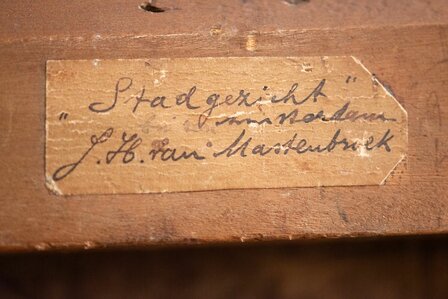 "Stadgezicht"
Amsterdam
J. H. van Mastenbroek